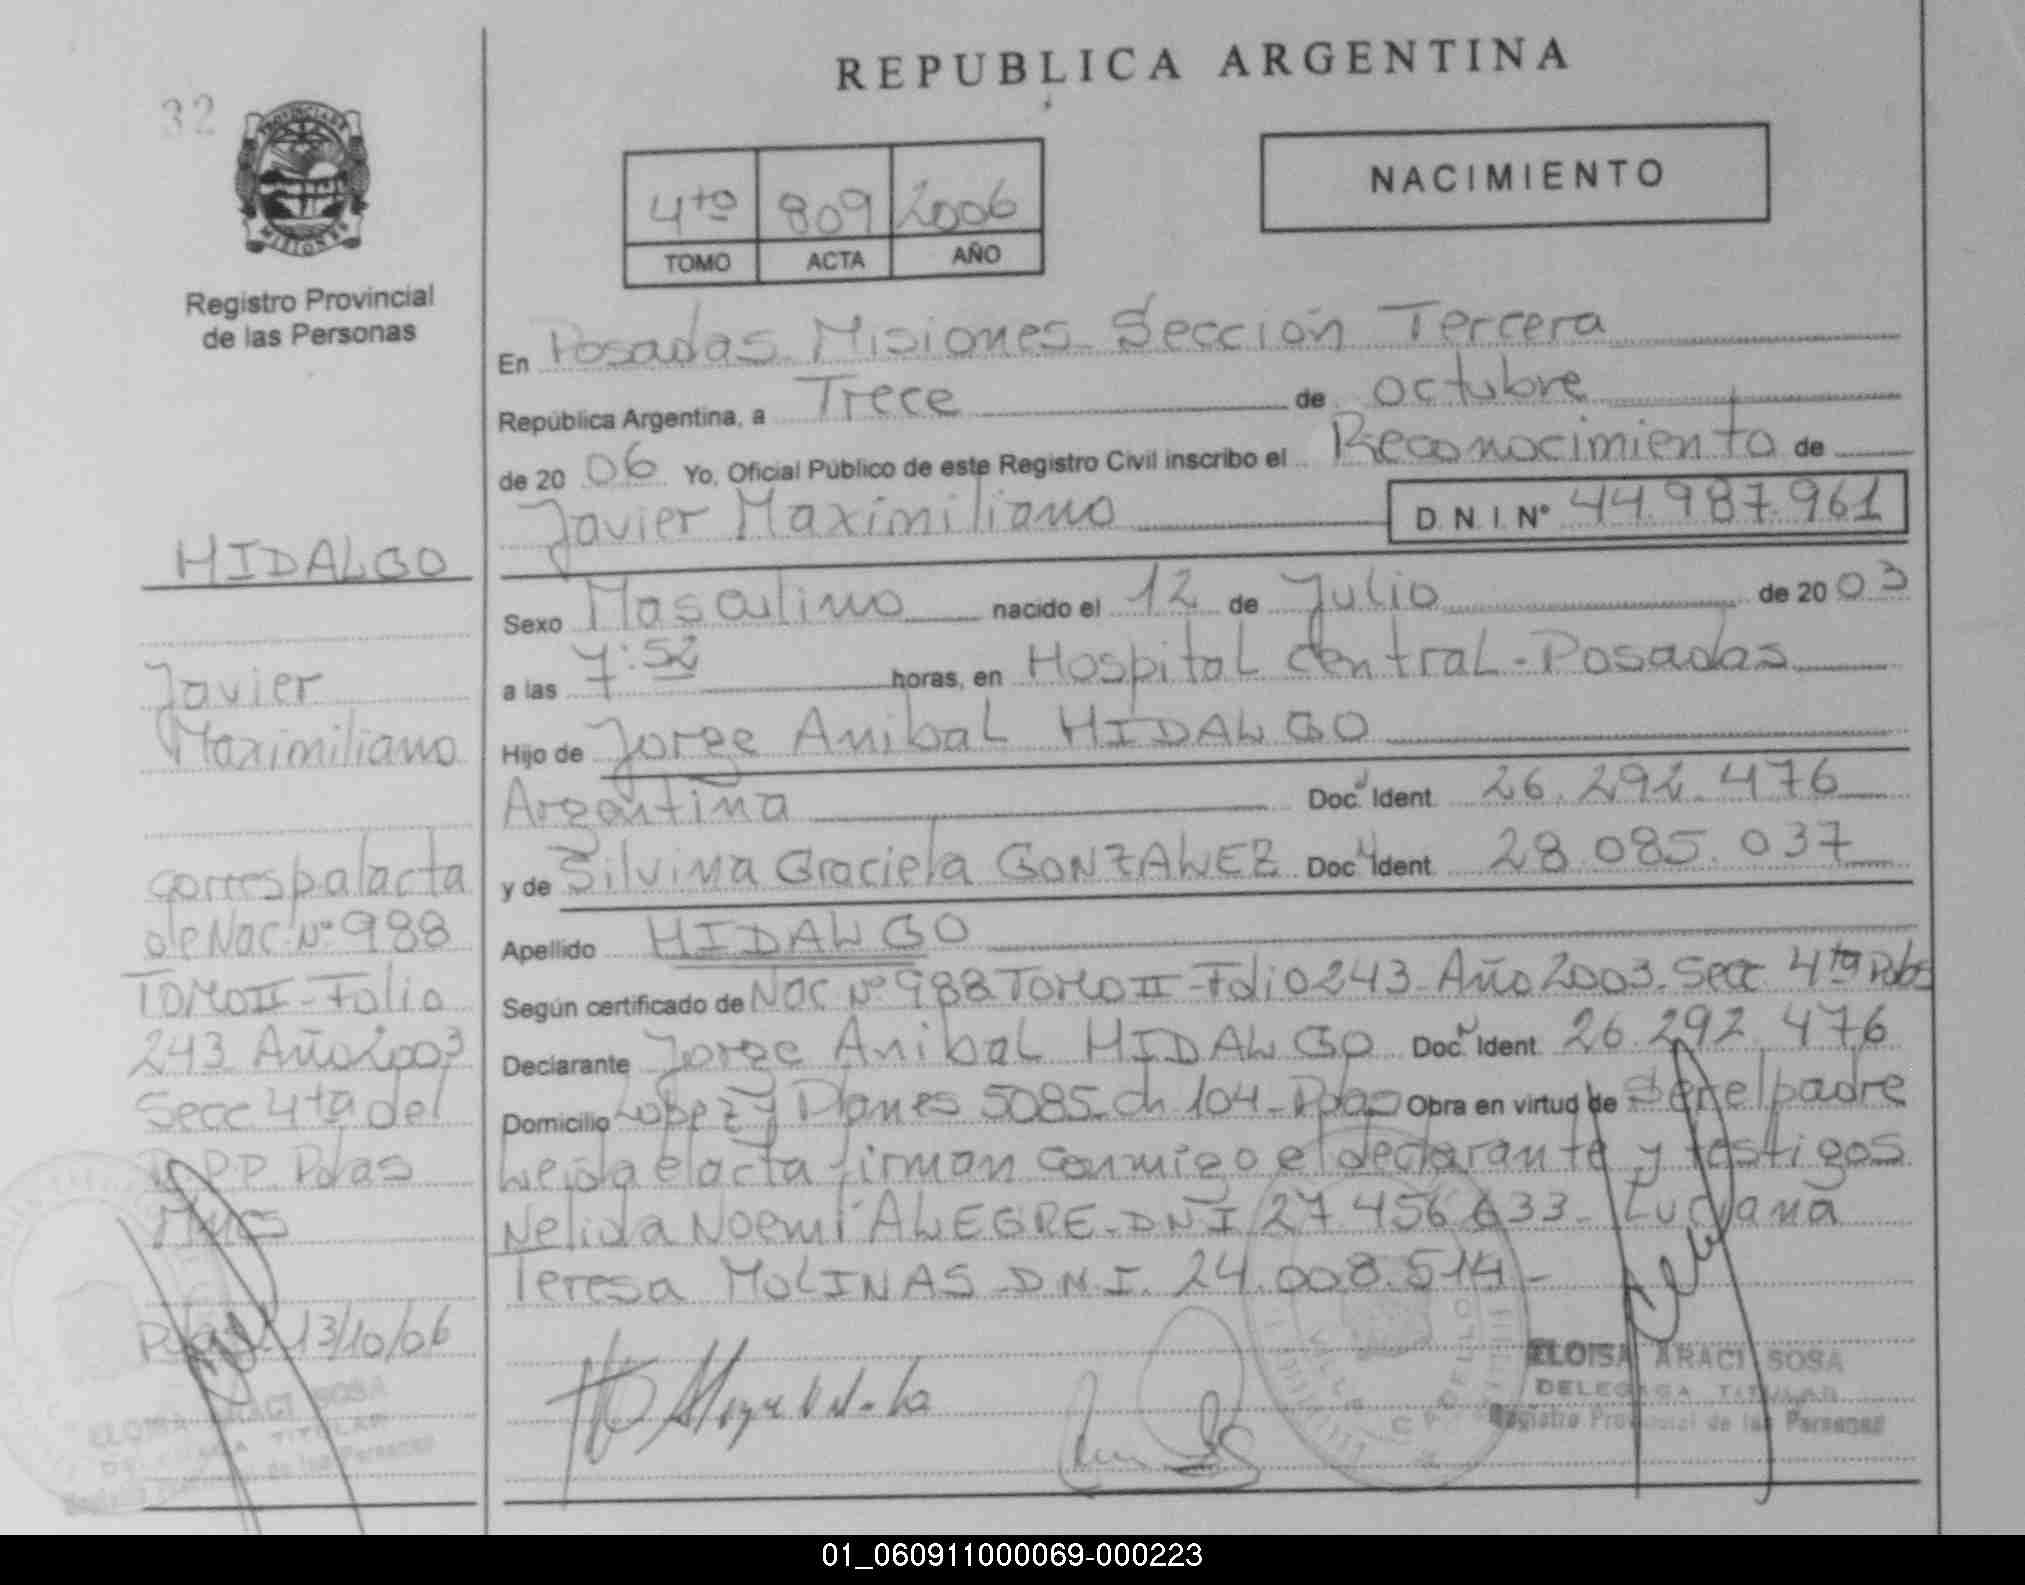 REPUBLICA ARGENTINA
32
PROVINCIA DE
MISIONES
Registro Provincial
de las Personas
4to 809 2006
TOMO ACTA AÑO
NACIMIENTO
En Posadas Misiones Sección Tercera
República Argentina, a Trece de octubre
de 2006 Yo, Oficial Público de este Registro Civil inscribo el Reconocimiento de
Javier Maximiliano D.N.I. Nº 44.987.961
Sexo Masculino nacido el 12 de Julio de 2003
a las 7:52 horas, en Hospital Central - Posadas
Hijo de Jorge Anibal HIDALGO
Argentina Doc. Ident. 26.292.476
y de Silvina Graciela GONZALEZ Doc. Ident. 28.085.037
Apellido HIDALGO
Según certificado de Nac Nº 988 TOMO II - Folio 243 - Año 2003. Secc 4ta Pdas
Declarante Jorge Anibal HIDALGO Doc. Ident. 26.292.476
Domicilio Lopez y Planes 5085 ch 104 - Pdas Obra en virtud de Ser el padre
Leida el acta firman conmigo el declarante y testigos
Nelida Noemi ALEGRE - DNI 27.456.633 - Luciana
Teresa MOLINAS D.N.I. 24.008.514 -
ELOISA ARACI SOSA
DELEGADA TITULAR
Registro Provincial de las Personas
HIDALGO
Javier
Maximiliano
corresp a l acta
de Nac. Nº 988
TOMO II - Folio
243 Año 2003
Secc 4ta del
R.P.P. Pdas
Mnes
Pdas 13/10/06
ELOISA ARACI SOSA
DELEGADA TITULAR
Registro Provincial de las Personas
01_060911000069-000223